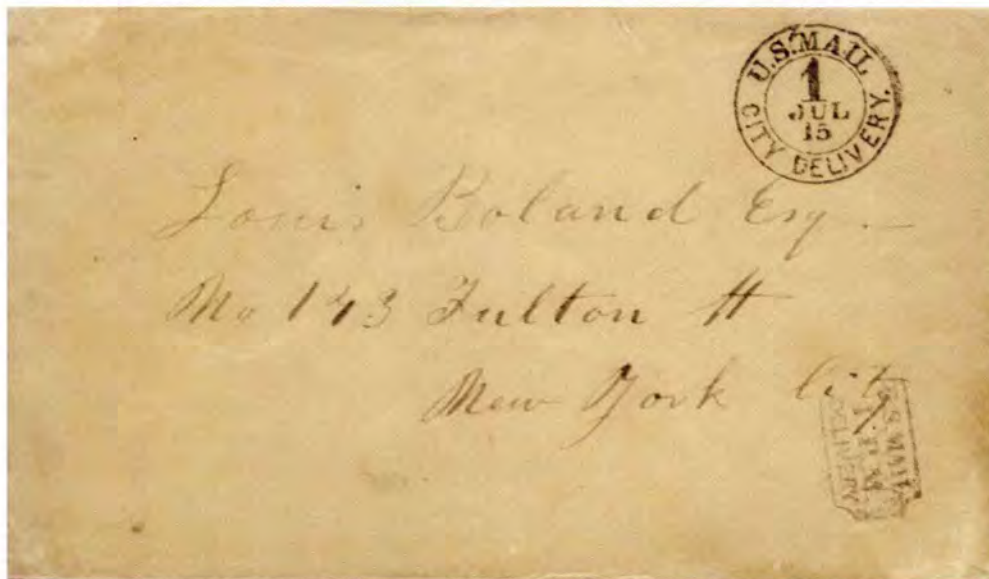 U.S. MAIL
1
JUL
15
CITY DELIVERY.
Louis Boland Esq
No 143 Fulton St
New York City
U.S. MAIL
P.M
DELIVERY